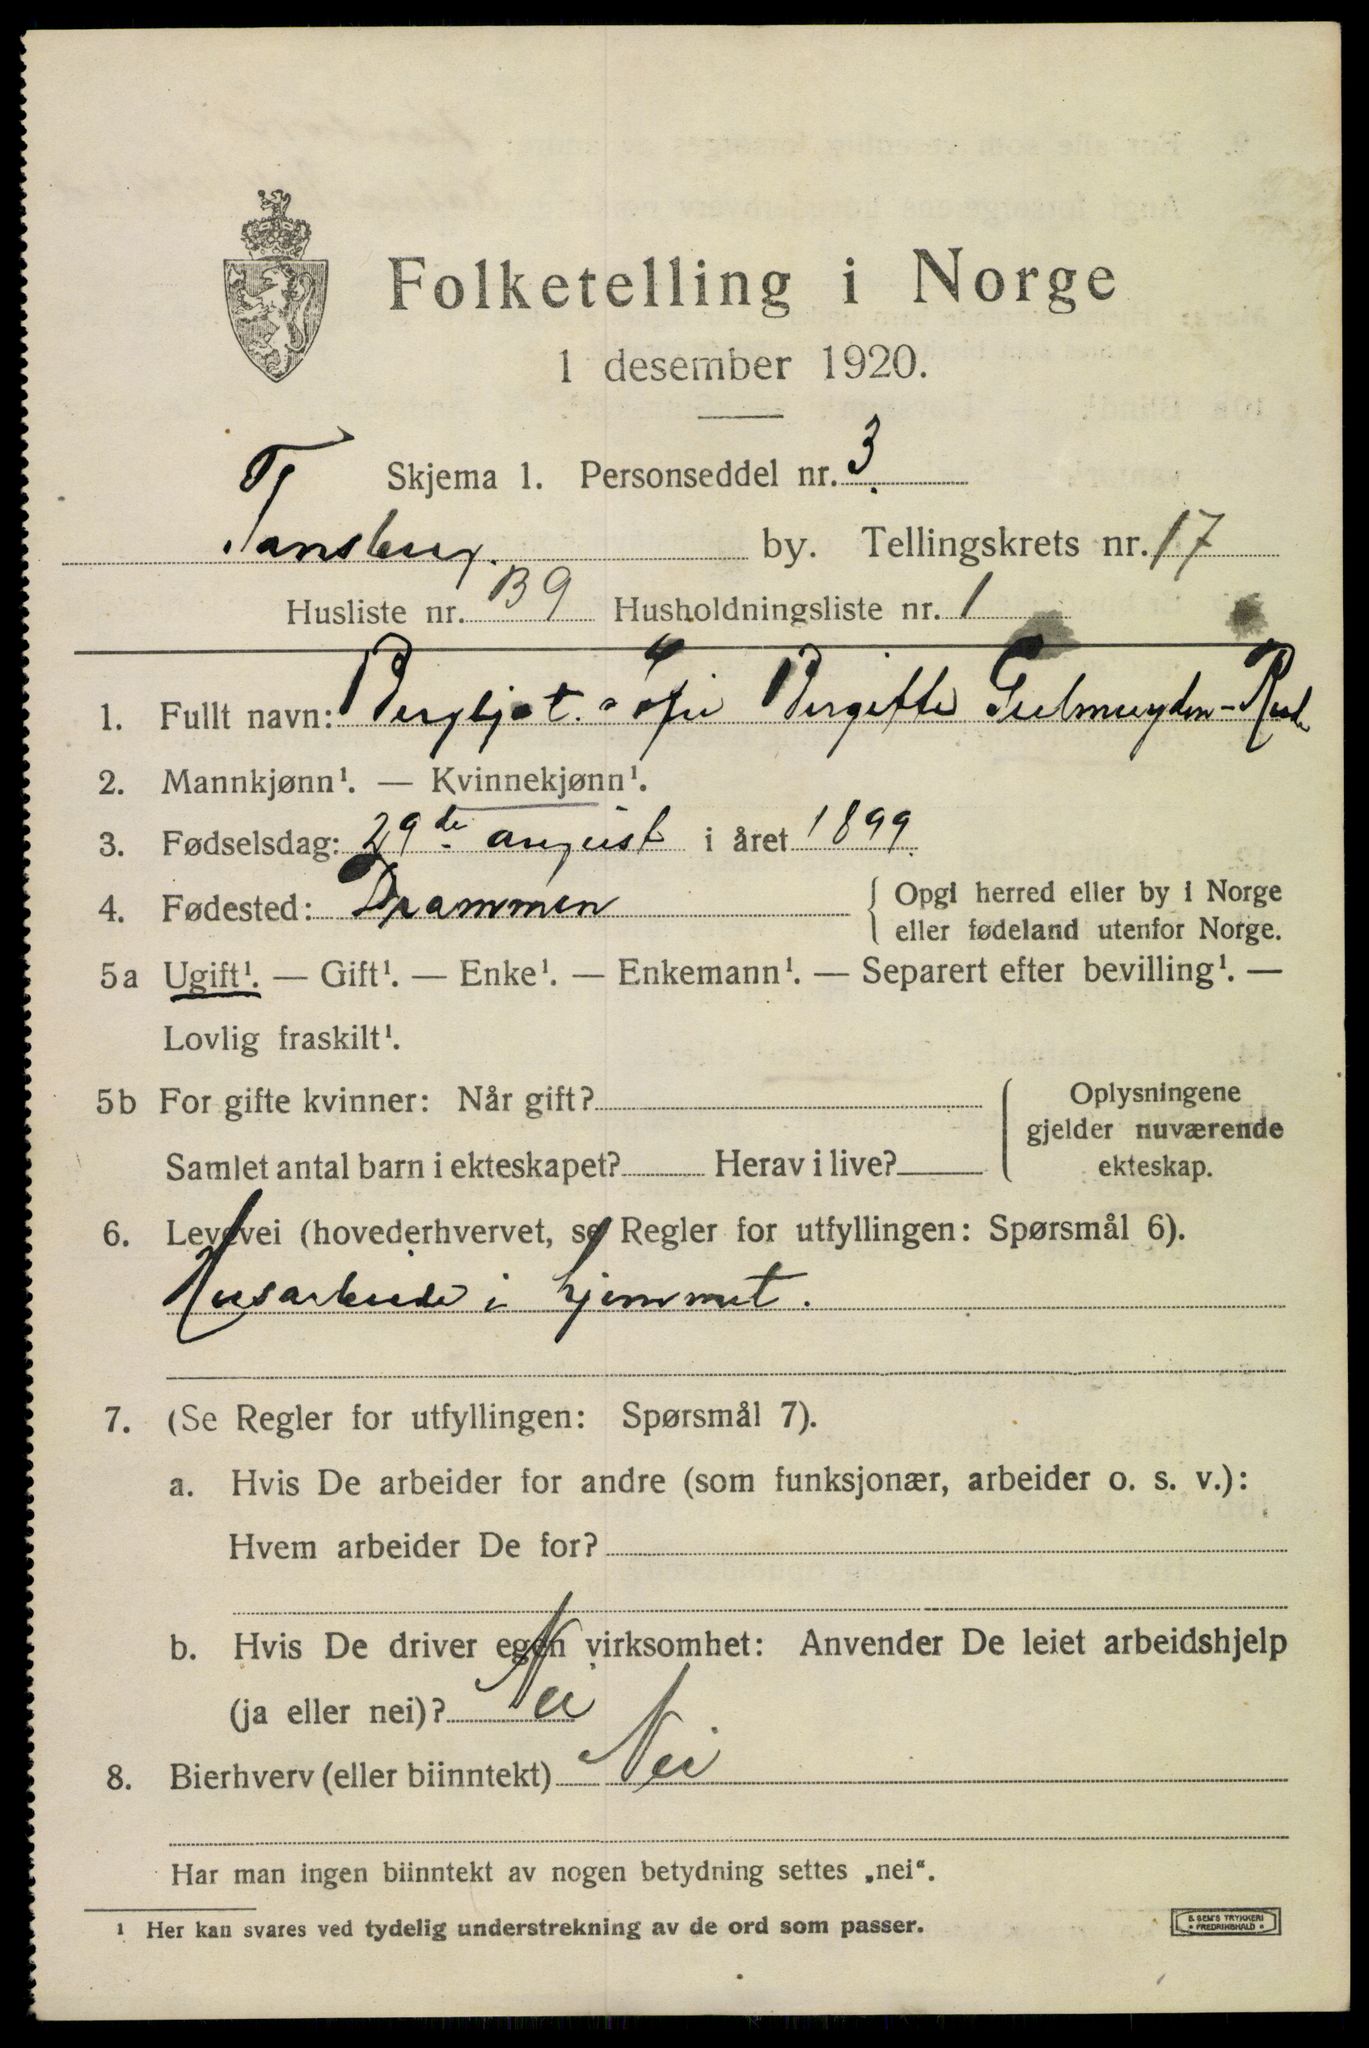 Folketelling i Norge
1 desember 1920.
Skjema 1. Personseddel nr. 3
Tønsberg by. Tellingskrets nr. 17
Husliste nr. B9 Husholdningsliste nr. 1
1. Fullt navn: Bergljot Sofie Birgitte Gulmuyden-Rush
2. Mannkjønn¹. — Kvinnekjønn¹.
3. Fødselsdag: 29de august i året 1899.
4. Fødested: Drammen { Opgi herred eller by i Norge
eller fødeland utenfor Norge.
5a Ugift¹. — Gift¹. — Enke¹. — Enkemann¹. — Separert efter bevilling¹. —
Lovlig fraskilt¹.
5b For gifte kvinner: Når gift?
Samlet antal barn i ekteskapet? Herav i live?
Oplysningene
gjelder nuværende
ekteskap.
6. Levevei (hovederhvervet, se Regler for utfyllingen: Spørsmål 6).
Husarbeide i hjemmet.
7. (Se Regler for utfyllingen: Spørsmål 7).
a. Hvis De arbeider for andre (som funksjonær, arbeider o. s. v.):
Hvem arbeider De for?
b. Hvis De driver egen virksomhet: Anvender De leiet arbeidshjelp
(ja eller nei)? Nei
8. Bierhverv (eller biinntekt) Nei
Har man ingen biinntekt av nogen betydning settes „nei“.
¹ Her kan svares ved tydelig understrekning av de ord som passer.
S. SEM'S TRYKKERI
* FREDRIKSHALD *